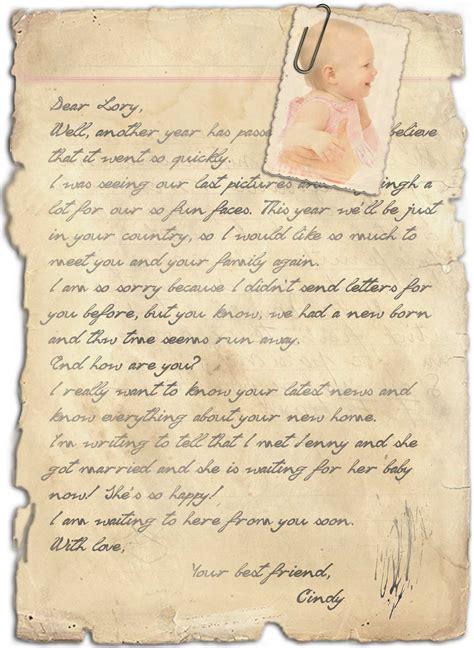 Dear Lory,
Well, another year has passe believe
that it went so quickly.
I was seeing our last pictures and ingh a
lot for our so fun faces. This year we'll be just
in your country, so I would like so much to
meet you and your family again.
I am so sorry because I didn't send letters for
you before, but you know, we had a new born
and thw time seems run away.
End how are you?
I really want to know your latest news and
know everything about your new home.
I'm writing to tell that I met Jenny and she
got married and she is waiting for her baby
now! She's so happy!
I am waiting to here from you soon.
With love,
Your best friend,
Cindy